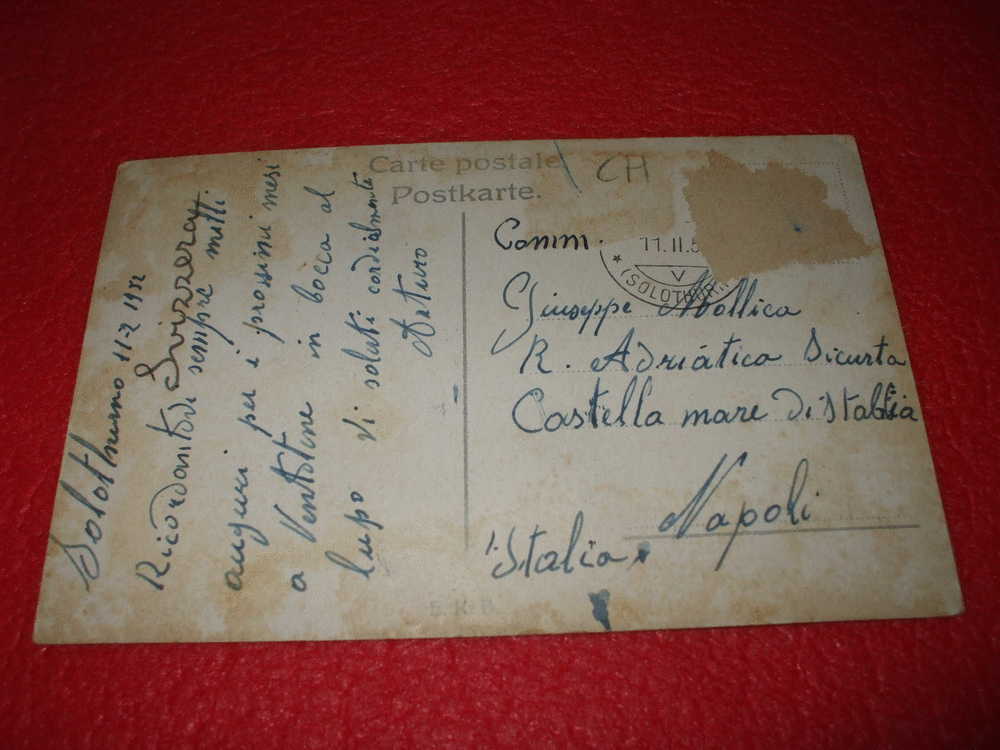 Carte postale
Postkarte.
CH
Solothurno 11-2 1952
Svizzera
Ricordandovi sempre
auguri per i prossimi mesi
a Ventotene in bocca al
lupo Vi saluti cordialmente
Arturo
Comm.
11.II.5
(SOLOTHURN
V
Giuseppe Mollica
R. Adriàtica Sicurta
Castella mare Di Stabbia
Napoli
Italia